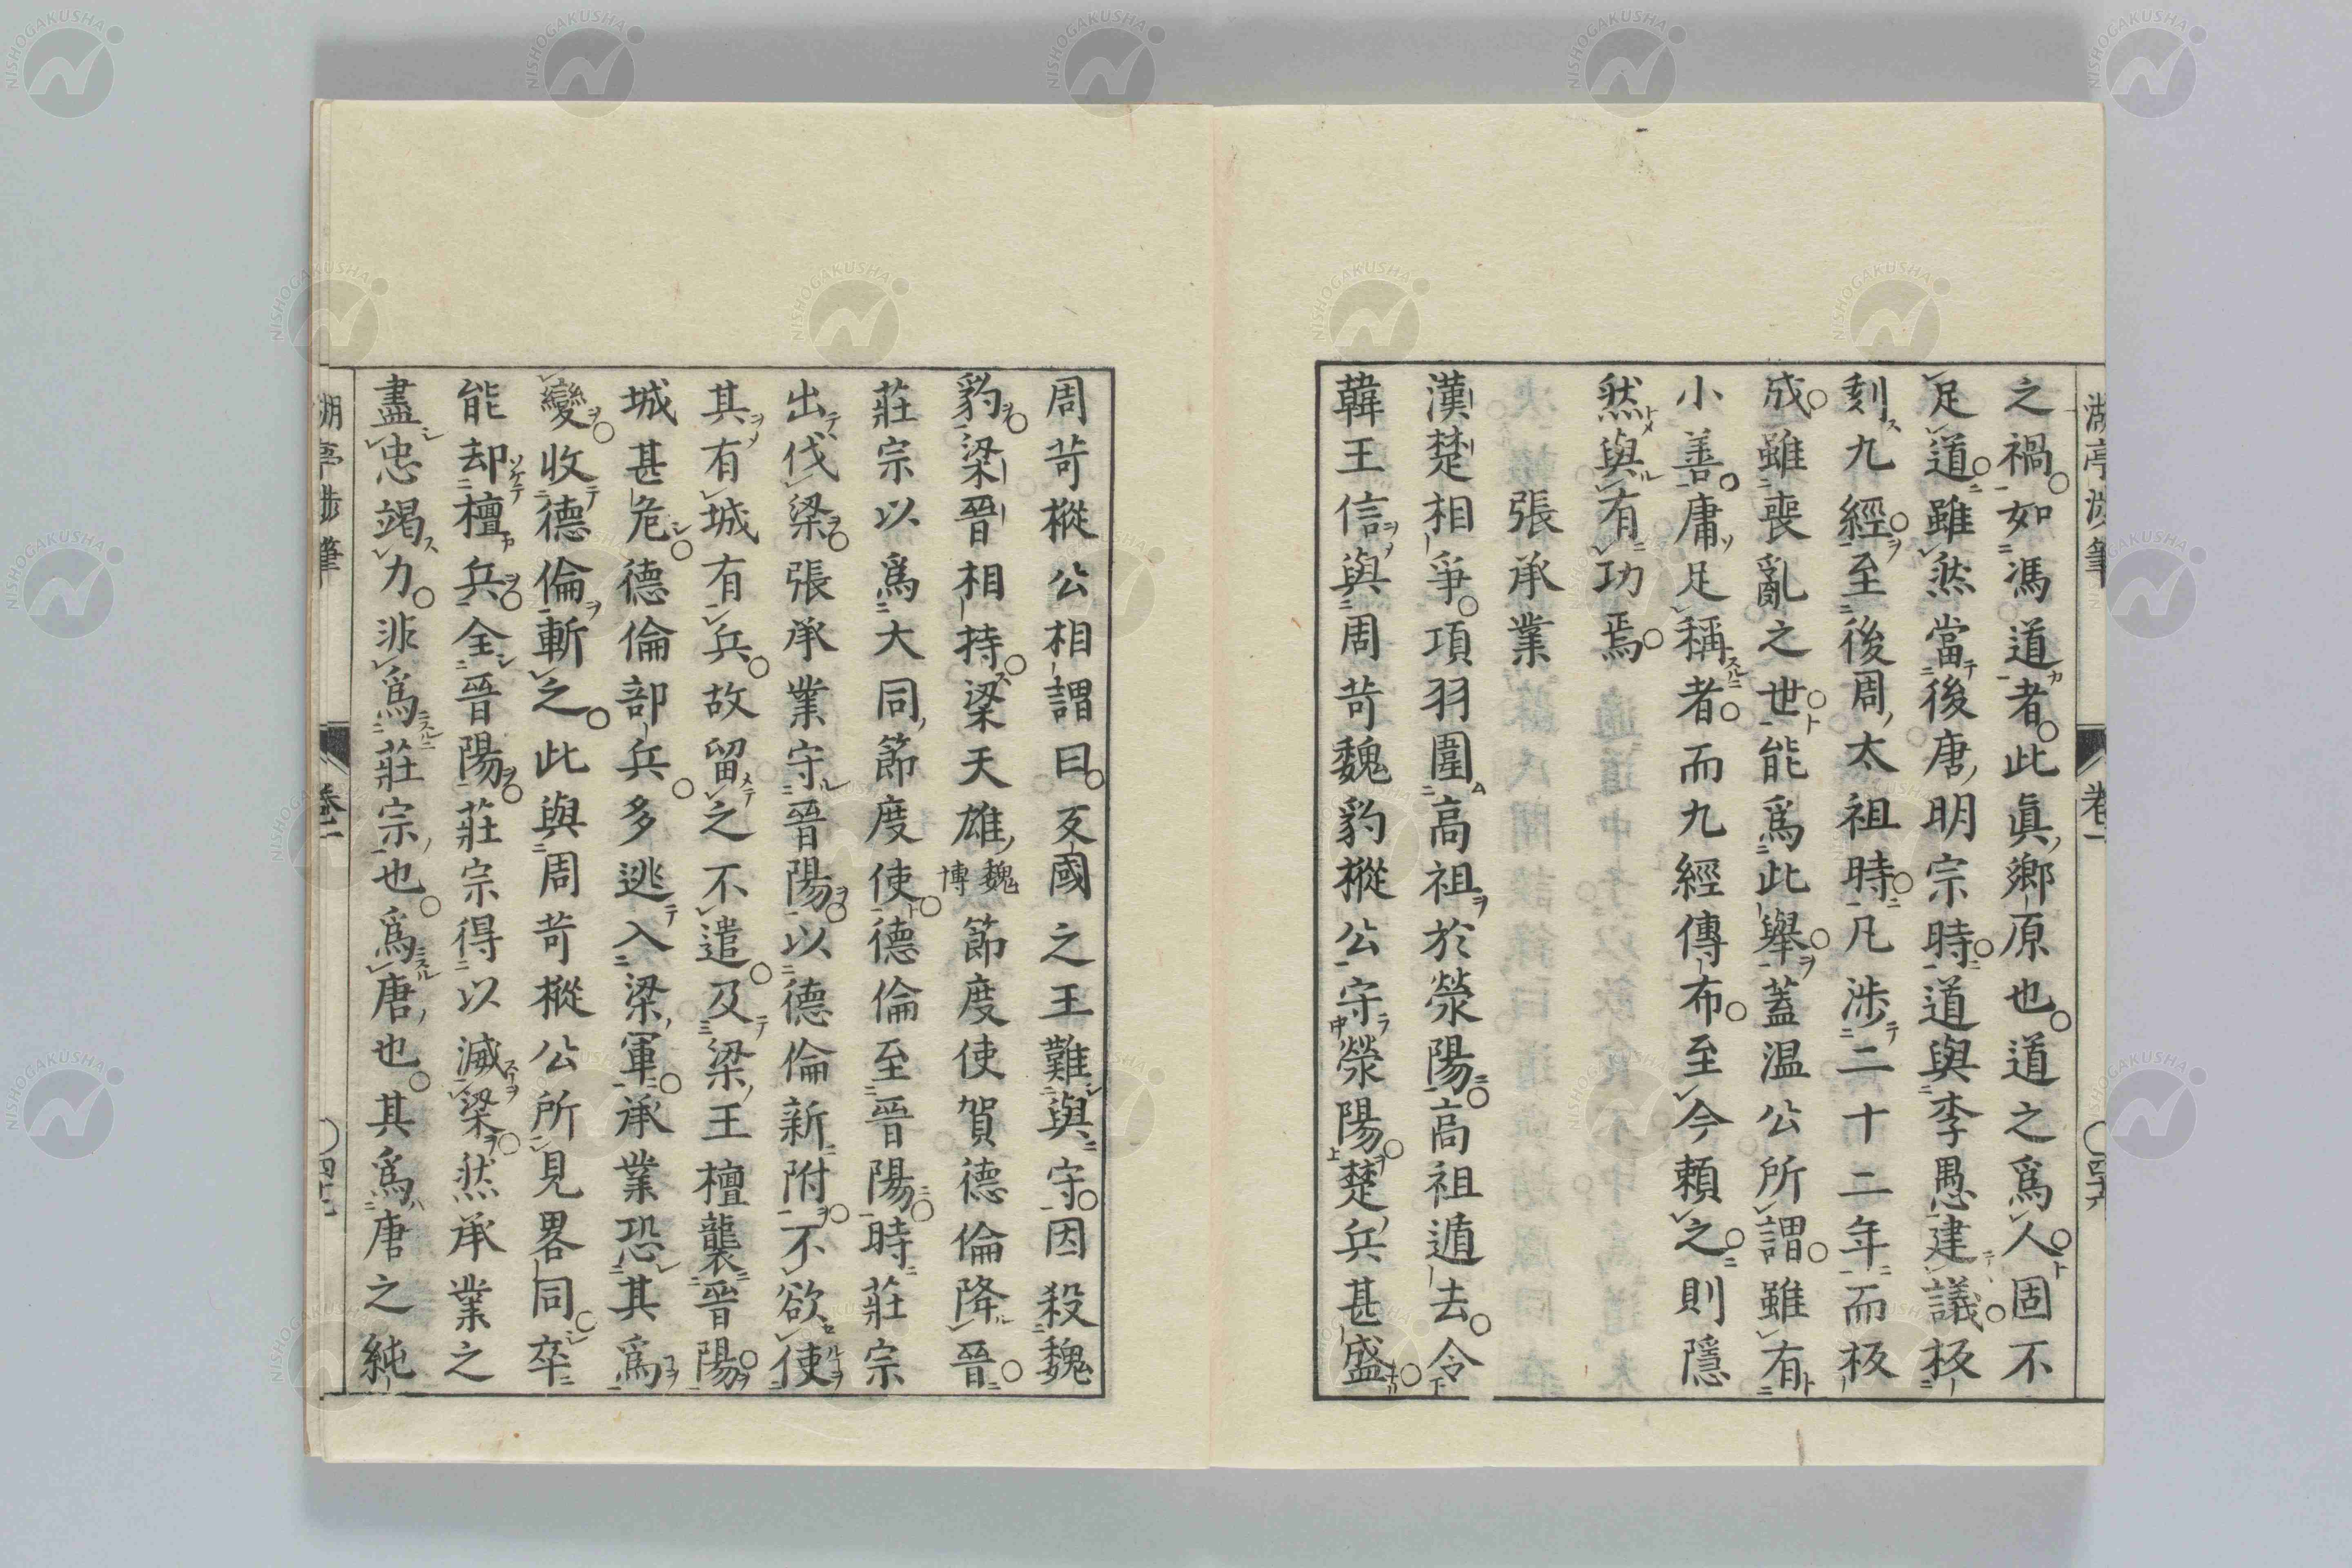 之禍如馮道者此眞鄉原也道之爲人固不
足道雖然當後唐明宗時道與李愚建議板
刻九經至後周太祖時凡涉二十二年而板
成雖喪亂之世能爲此舉蓋温公所謂雖有
小善庸足稱者而九經傳布至今賴之則隱
然與有功焉
張承業
漢楚相爭項羽圍高祖於滎陽高祖遁去令
韓王信與周苛魏豹樅公守滎陽楚兵甚盛
周苛樅公相謂曰反國之王難與守因殺魏
豹梁晉相持梁天雄魏博節度使賀德倫降晉
莊宗以爲大同節度使德倫至晉陽時莊宗
出伐梁張承業守晉陽以德倫新附不欲使
其有城有兵故留之不遣及梁王檀襲晉陽
城甚危德倫部兵多逃入梁軍承業恐其爲
變收德倫斬之此與周苛樅公所見畧同卒
能却檀兵全晉陽莊宗得以滅梁然承業之
盡忠竭力非爲莊宗也爲唐也其爲唐之純
卷二
NISHOGAKUSHA